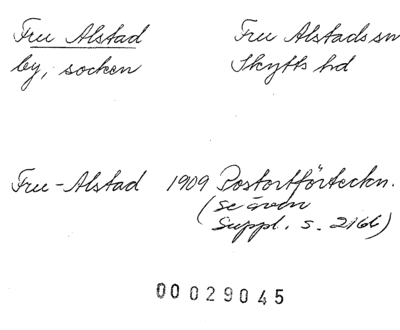 Fru Alstad Fru Alstads sn
by, socken Skytts hd
Fru-Alstad 1909 Postortförteckn.
(se även
Suppl. s. 2166)
00029045